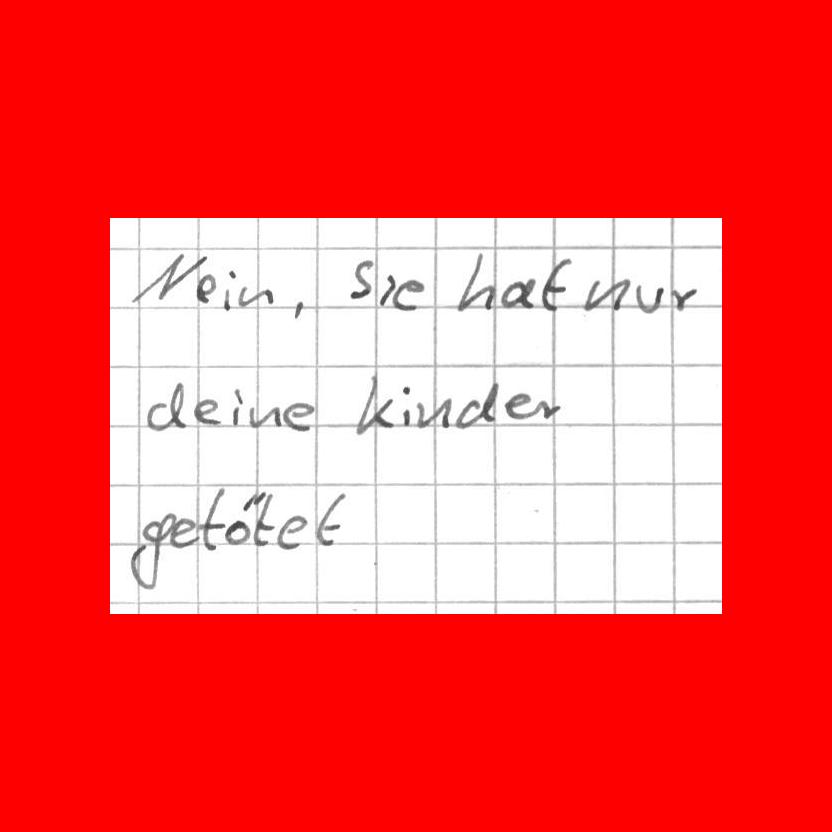 Nein, sie hat nur
deine kinder
getötet